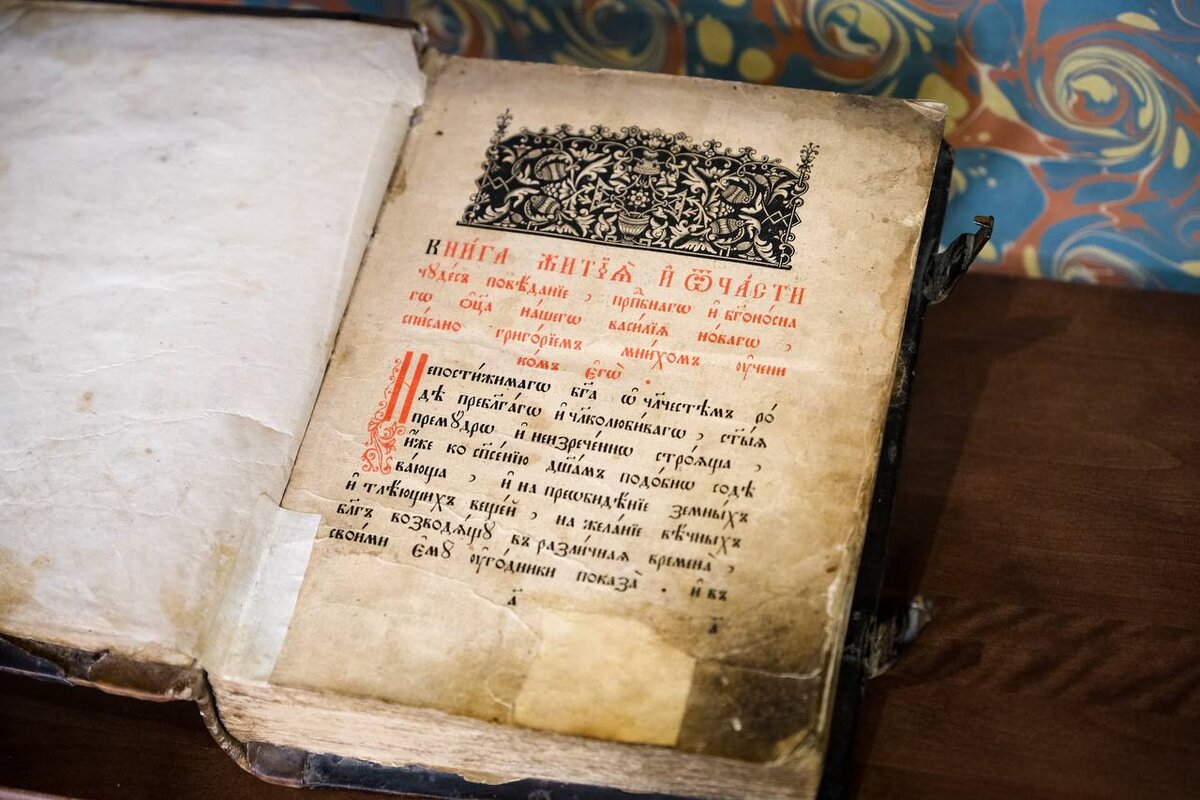 Кни́га житїѧ̀ и҆ ѿча́сти
чꙋде́съ повѣ́данїе, прпⷣбнагѡ и҆ бг҃оно́сна
гѡ ѻ҆ц҃а̀ на́шегѡ васи́лїѧ но́вагѡ,
спи́сано григо́рїемъ мни́хомъ ᲂу҆чени
ко́мъ є҆гѡ̀.
Непости́жимагѡ бг҃а ѡ҆ чл҃честѣмъ ро́
дѣ пребл҃га́гѡ и҆ чл҃колюби́вагѡ, ст҃ы́ѧ
премꙋ́дрѡ и҆ неизрече́ннѡ строѧ́ща,
и҆̀же ко сп҃се́нїю дш҃а́мъ подо́бнѡ содѣ
ва́юща, и҆ на преѡбидѣ́нїе земны́хъ
и҆ тлѣ́ющихъ веще́й, на жела́нїе вѣ́чныхъ
бл҃гъ возводѧ́щꙋ въ разли́чнаѧ времена̀,
свои́ми є҆мꙋ̀ ᲂу҆го́дники показа̀. и҆ въ
а҃